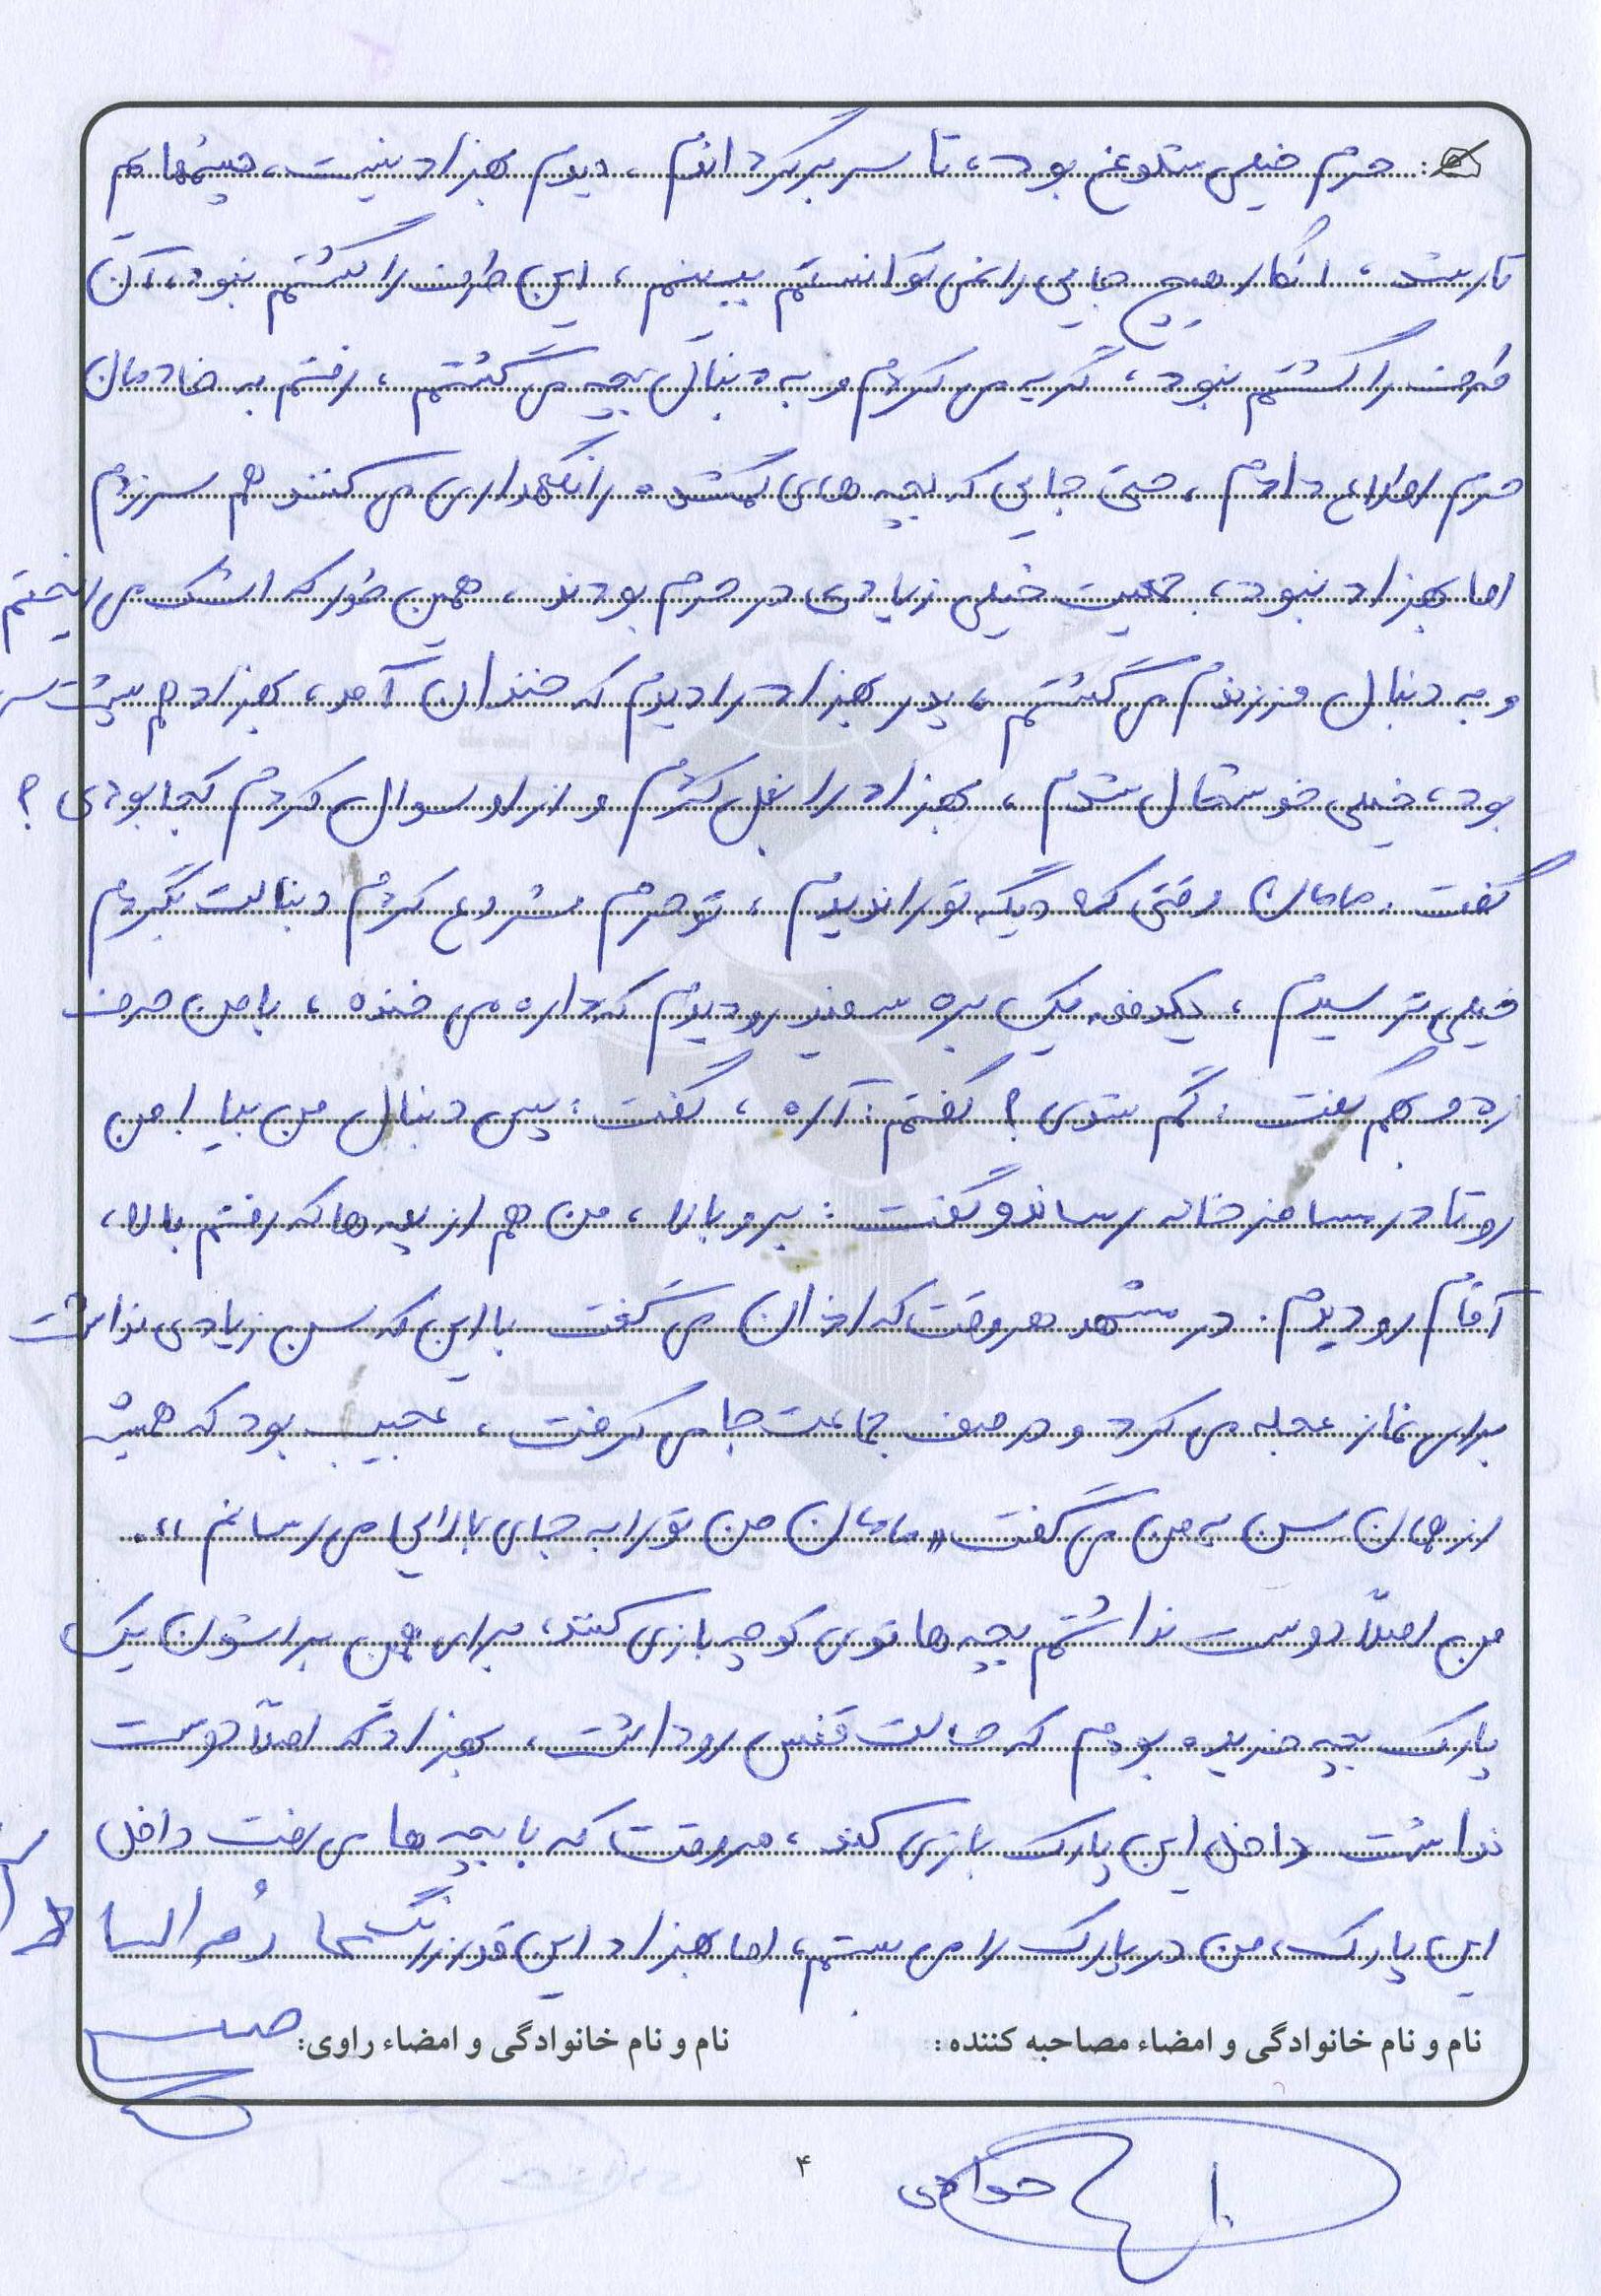 حرم خیلی شلوغ بود، تا سر برگرداندم، دیدم بهزاد نیست، چشمهایم
تار شد، انگار هیچ جایی را نمی توانستم ببینم، این طرف را گشتم نبود، آن
طرف را گشتم نبود، گریه می کردم و به دنبال بچه می گشتم، رفتم به خادمان
حرم اطلاع دادم، حتی جایی که بچه های گمشده را نگهداری می کنند هم سر زدم
اما بهزاد نبود، جمعیت خیلی زیادی در حرم بودند، همین طور که اشک می ریختم
و به دنبال فرزندم می گشتم، پدر بهزاد را دیدم که خندان آمد، بهزاد هم پشت سر
بود، خیلی خوشحال شدم، بهزاد را بغل کردم و از او سوال کردم کجا بودی؟
گفت: مامان وقتی که دیگه تو را ندیدم، تو حرم شروع کردم دنبالت بگردم
خیلی ترسیدم، یکدفعه یک بره سفید رو دیدم که داره می خنده، با من حرف
زد و بهم گفت: گم شدی؟ گفتم: آره، گفت: پس دنبال من بیا! من
رو تا در مسافرخانه رساند و گفت: برو بالا، من هم از پله ها که رفتم بالا،
آقام رو دیدم. در مشهد هر وقت که اذان می گفت با این که سن زیادی نداشت
برای نماز عجله می کرد و در صف جماعت جا می گرفت، عجیب بود که همیشه
از همان سن به من می گفت «مامان من تو را به جای بالایی می رسانم».
من اصلاً دوست نداشتم بچه ها توی کوچه بازی کنند، برای همین براشون یک
پارک بچه خریده بودم که حالت قفس رو داشت، بهزاد که اصلاً دوست
نداشت داخل این پارک بازی کند، هر وقت که با بچه ها می رفت داخل
این پارک، من در پارک را می بستم، اما بهزاد این قدر زرنگ
نام و نام خانوادگی و امضاء مصاحبه کننده:
نام و نام خانوادگی و امضاء راوی:
۴